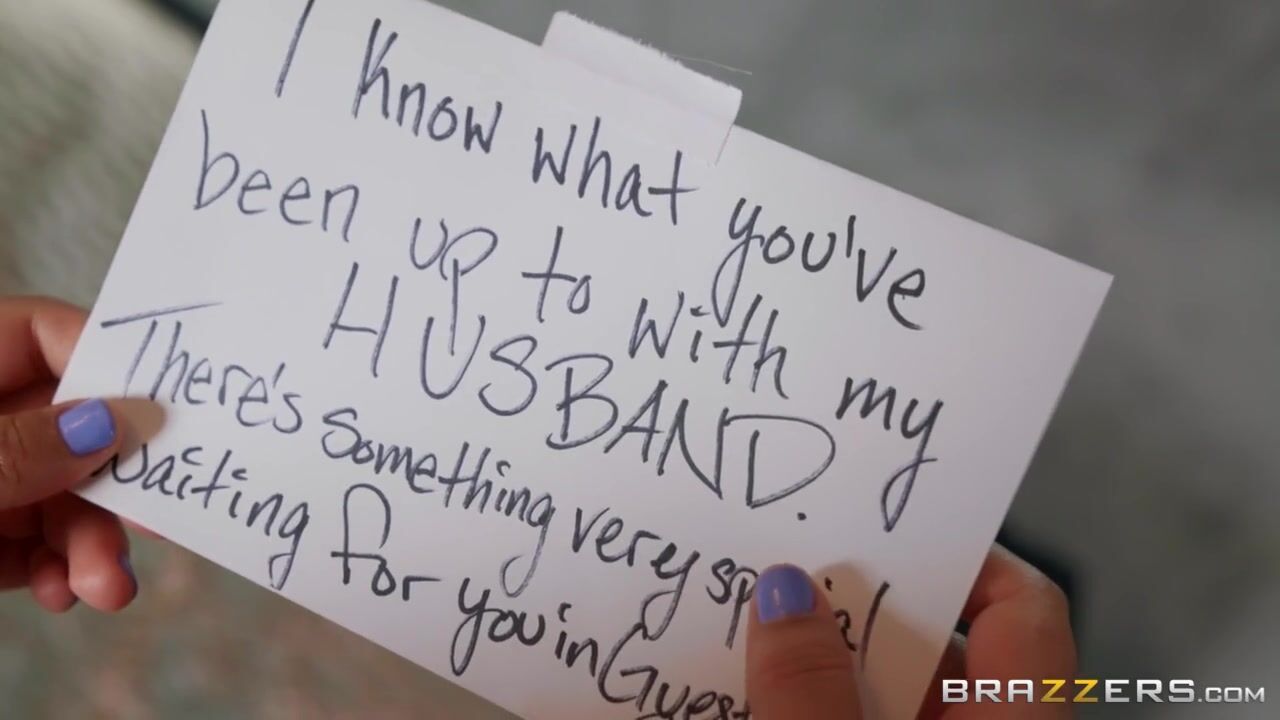 I know what you've
been up to with my
HUSBAND.
There's something very
waiting for you in Guest
BRAZZERS.COM